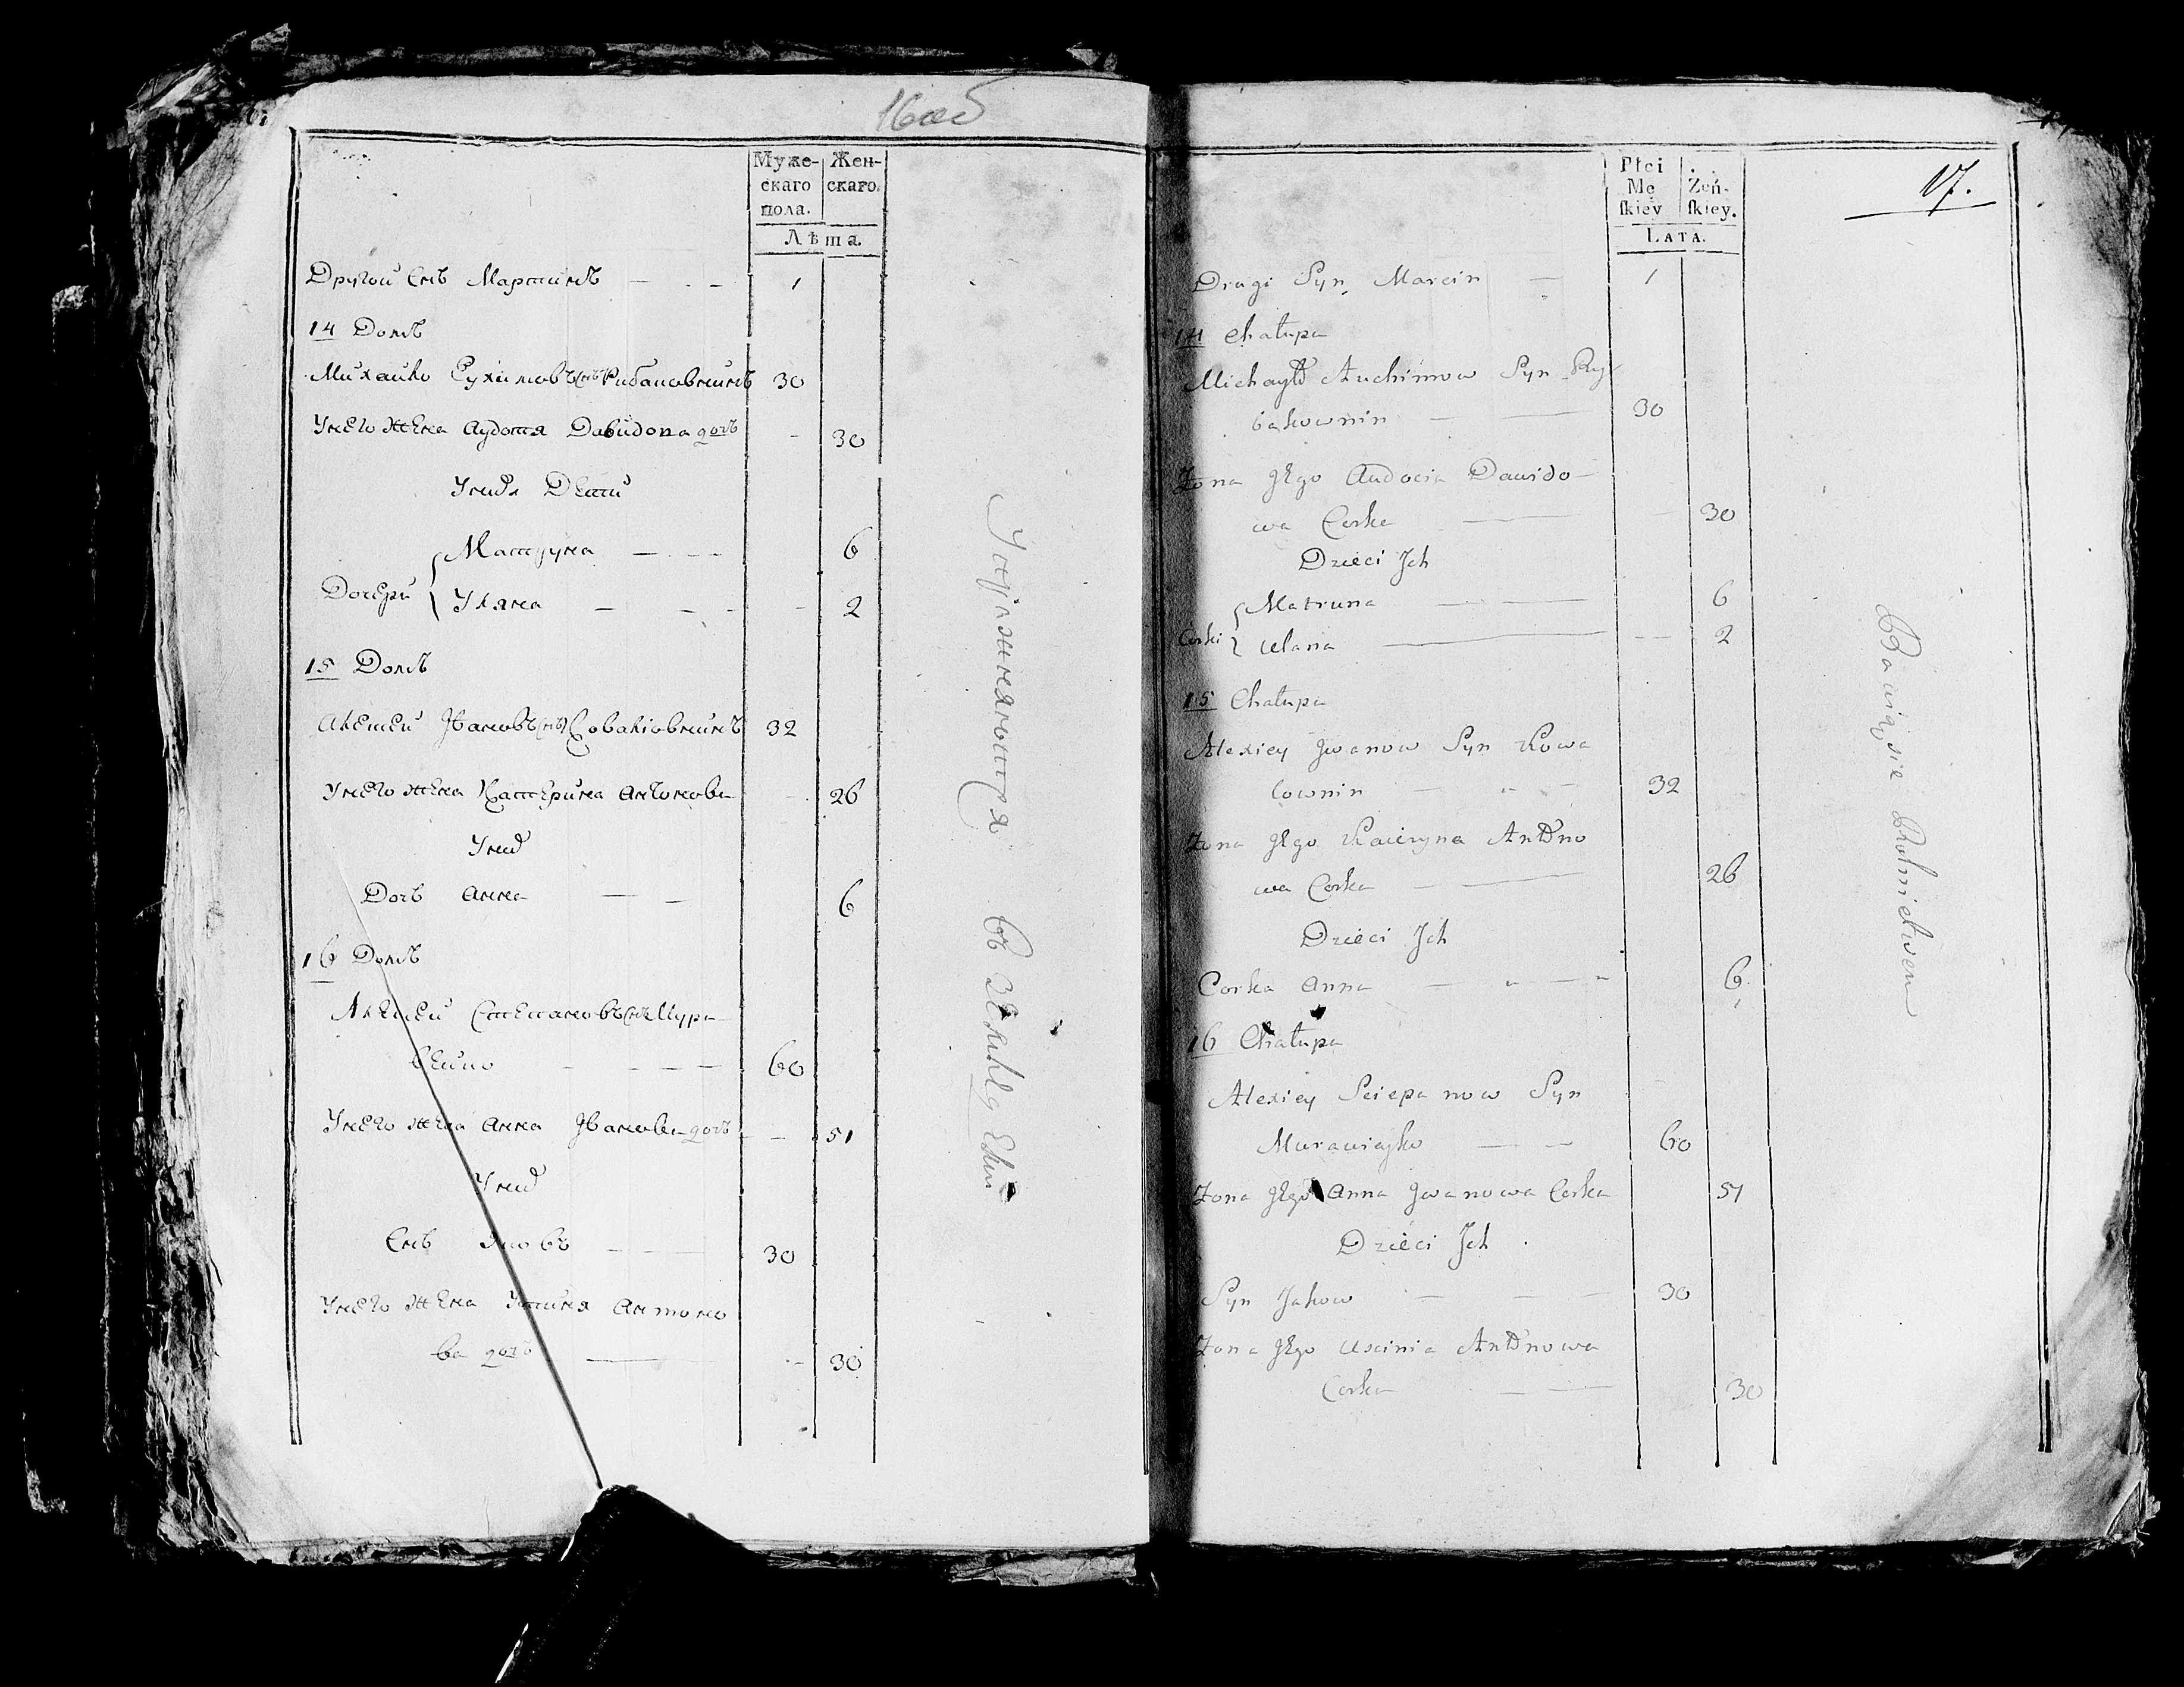 16об
Муже-
скаго
пола.
Жен-
скаго.
Лѣта.
Другой Снъ Мартинъ — - — 1
14 Домъ
Михайло Еухимовъ снъ Рибаковнинъ 30
Унего жена Аудотя Давидова дочъ - 30
Унихъ Дети
Матруна — - — 6
Дочери
Уляна — - — 2
15 Домъ
Алексей Ивановъ снъ Ковалiовнинъ 32
Унего жена Катерина Антонова - 26
Унихъ
Дочъ Анна — — 6
16 Домъ
Алексей Степановъ снъ Мура-
вейко - — — — 60
Унего жена Анна Иванова дочъ - — 51
Унихъ
Снъ Яковъ — — 30
Унего жена Устиня Антоно
ва дочъ — - 30
Упражняются въ
17.
Płci
Mę
ſkiey
Żeń-
ſkiey.
LATA.
Drugi Syn Marcin — 1
14 Chałupa
Michayło Auchimow Syn Ry
bakownin — — 30
Żona Jego Audocia Dawido—
wa Corka — — 30
Dzieci Jch
Matruna — — 6
Corki
Ulana — -- 2
15 Chałupa
Alexiey Jwanow Syn Kowa
lownin — " — 32
Żona Jego Kaciryna Antono
wa Corka — — 26
Dzieci Jch
Corka Anna — " — " 6
16 Chałupa
Alexiey Sciepanow Syn
Murawieyko — — 60
Żona Jego Anna Jwanowa Corka 51
Dzieci Jch
Syn Jakow — — — 30
Żona Jego Uscinia Antonowa
Corka — — 30
Bawią się Rolnictwem